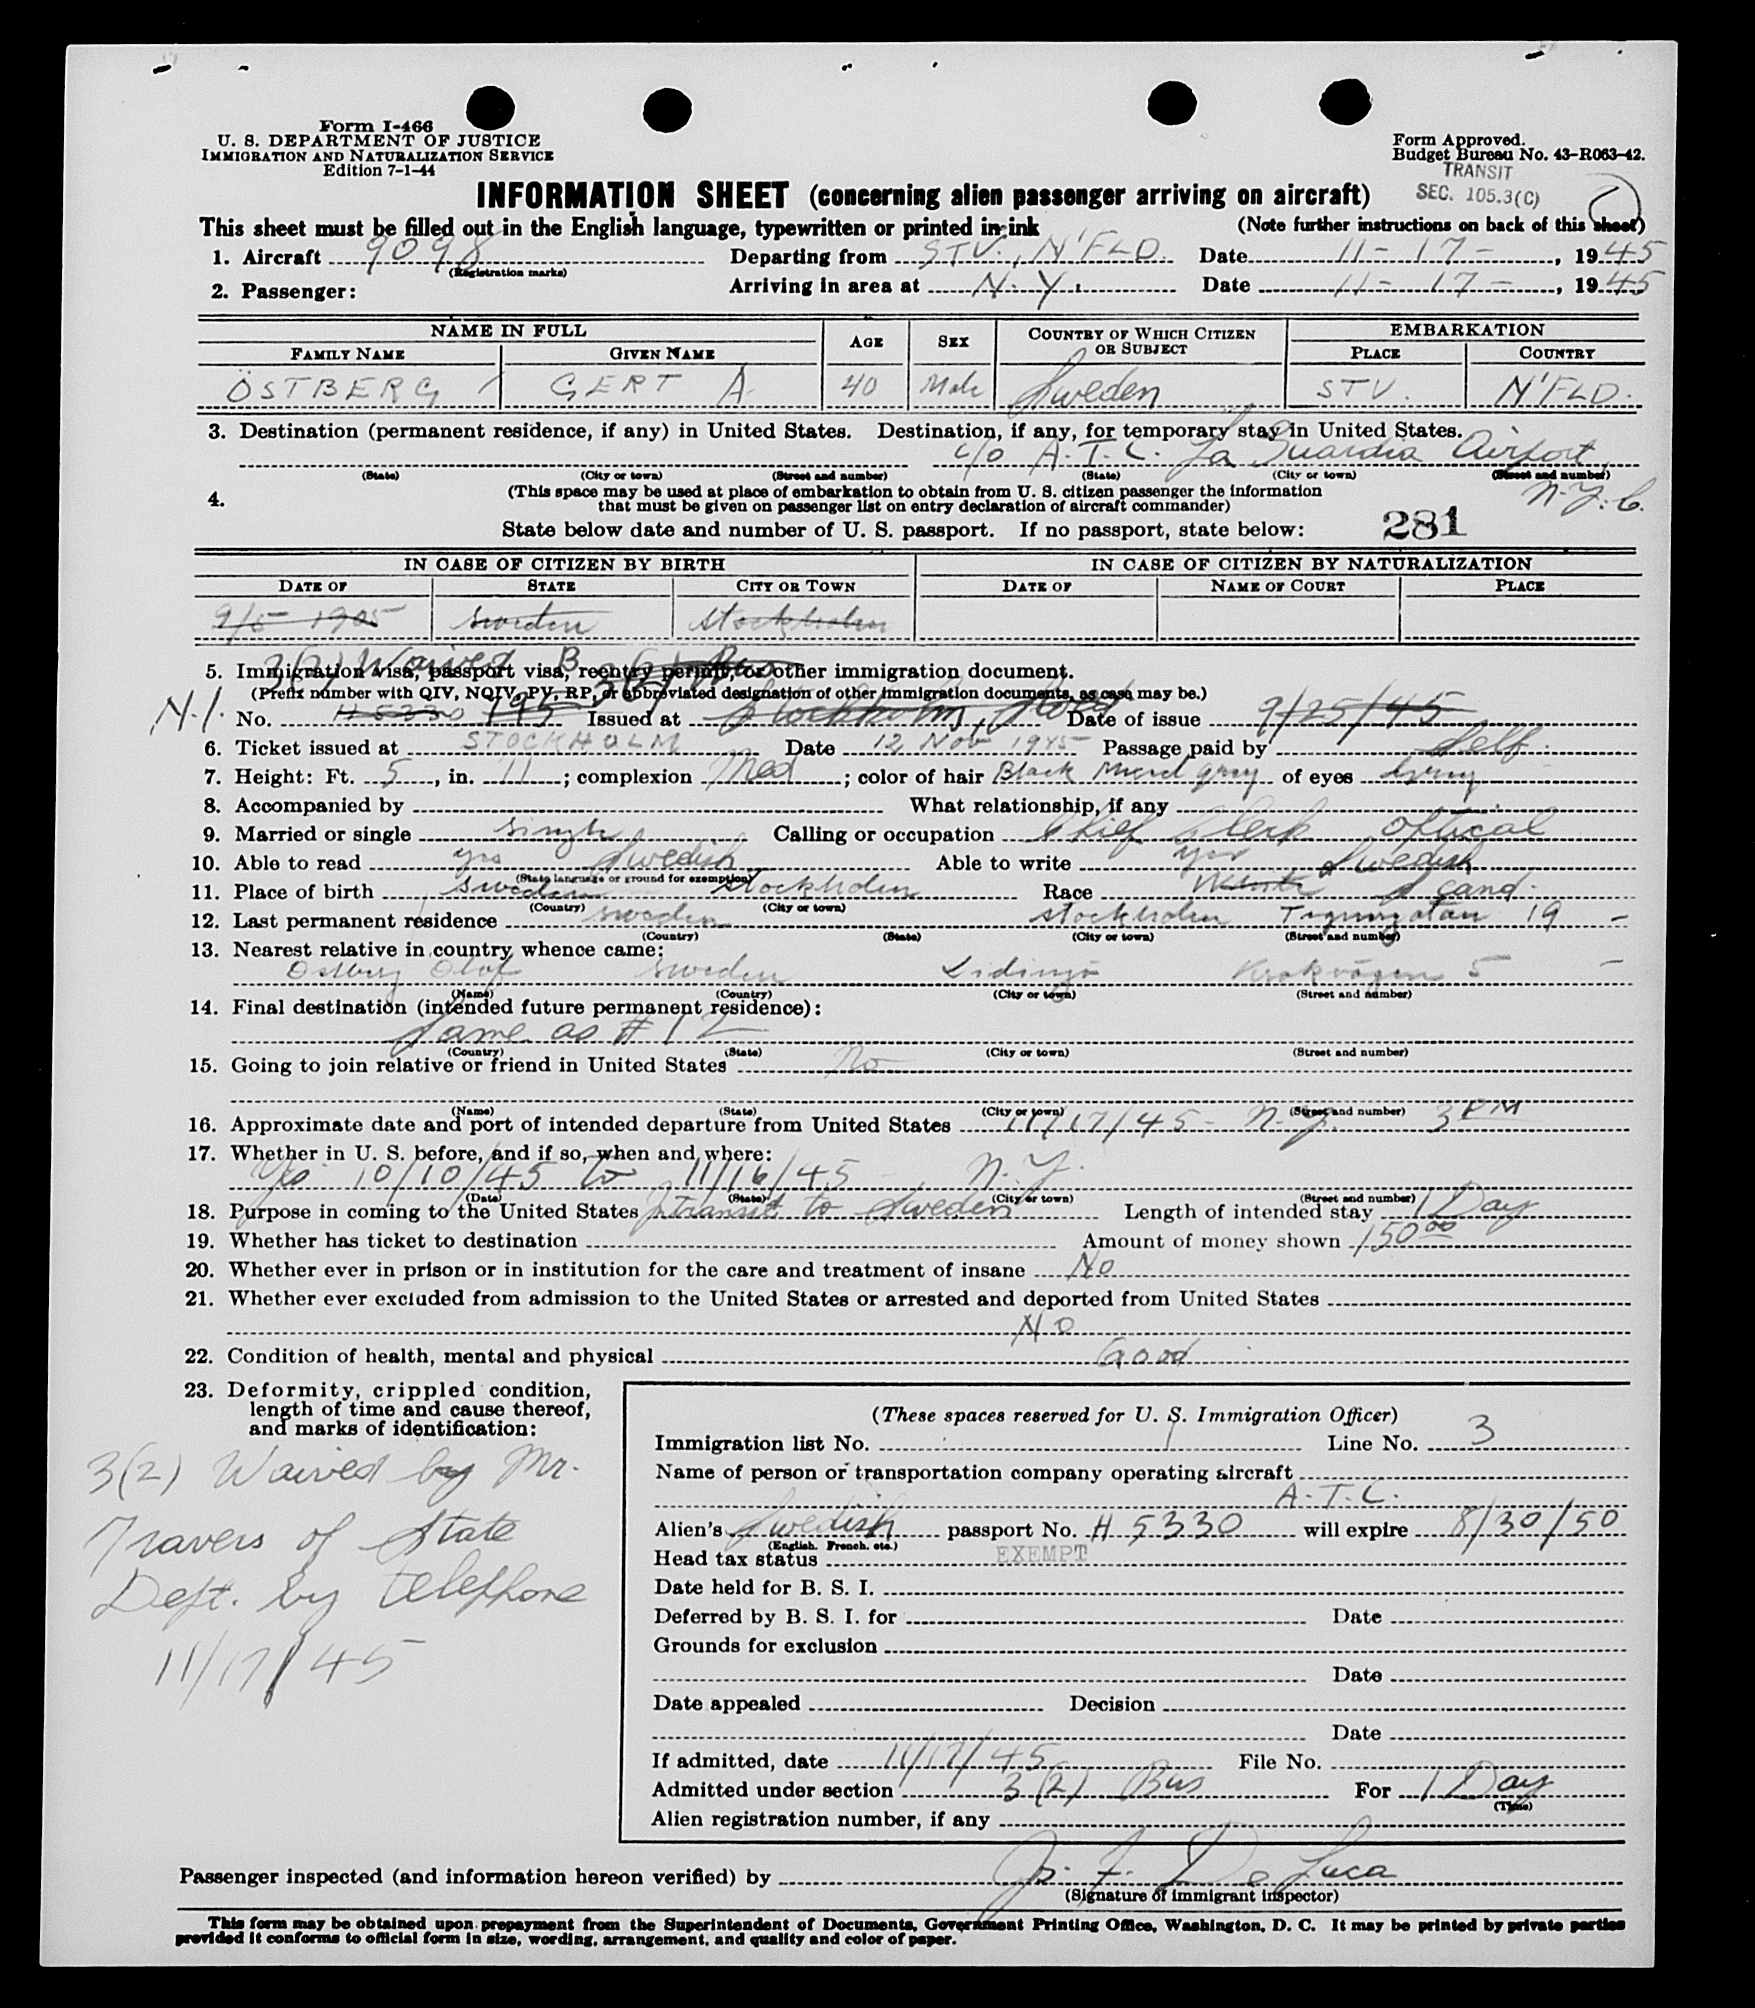 Form I-466
U. S. DEPARTMENT OF JUSTICE
IMMIGRATION AND NATURALIZATION SERVICE
Edition 7-1-44
Form Approved.
Budget Bureau No. 43-R063-42.
TRANSIT
SEC. 105.3(C)
INFORMATION SHEET (concerning alien passenger arriving on aircraft)
This sheet must be filled out in the English language, typewritten or printed in ink (Note further instructions on back of this sheet)
1. Aircraft 9098 Departing from STV., N'FLD. Date 11-17-, 1945
(Registration marks)
2. Passenger: Arriving in area at N.Y. Date 11-17-, 1945
NAME IN FULL AGE SEX COUNTRY OF WHICH CITIZEN OR SUBJECT EMBARKATION
FAMILY NAME GIVEN NAME PLACE COUNTRY
ÖSTBERG GERT A. 40 Male Sweden STV. N'FLD.
3. Destination (permanent residence, if any) in United States. Destination, if any, for temporary stay in United States.
c/o A.T.C. La Guardia Airport
(State) (City or town) (Street and number) (State) (City or town) (Street and number)
N.Y.C.
4. (This space may be used at place of embarkation to obtain from U. S. citizen passenger the information
that must be given on passenger list on entry declaration of aircraft commander)
State below date and number of U. S. passport. If no passport, state below: 281
IN CASE OF CITIZEN BY BIRTH IN CASE OF CITIZEN BY NATURALIZATION
DATE OF STATE CITY OR TOWN DATE OF NAME OF COURT PLACE
9/5 1905 Sweden Stockholm
3(2) Waived
5. Immigration visa, passport visa, reentry permit, or other immigration document.
(Prefix number with QIV, NQIV, PV, RP, or abbreviated designation of other immigration documents, as case may be.)
N.I. No. H5330 195 Issued at Stockholm, Swed Date of issue 9/25/45
6. Ticket issued at STOCKHOLM Date 12 Nov 1945 Passage paid by Self
7. Height: Ft. 5, in. 11; complexion Med; color of hair Black Mixed gray of eyes Gray
8. Accompanied by What relationship, if any
9. Married or single single Calling or occupation Chief Clerk optical
10. Able to read yes Swedish Able to write yes Swedish
(State language or ground for exemption)
11. Place of birth Sweden Stockholm Race White Scand.
(Country) (City or town)
12. Last permanent residence Sweden Stockholm 19
(Country) (State) (City or town) (Street and number)
13. Nearest relative in country whence came:
Östberg Olof Sweden Lidingö 5
(Name) (Country) (City or town) (Street and number)
14. Final destination (intended future permanent residence):
Same as #12
(Country) (State) (City or town) (Street and number)
15. Going to join relative or friend in United States No
(Name) (State) (City or town) (Street and number)
16. Approximate date and port of intended departure from United States 11/17/45 - N.Y. 3 PM
17. Whether in U. S. before, and if so, when and where:
Yes 10/10/45 to 11/16/45 N.Y.
(Date) (State) (City or town) (Street and number)
18. Purpose in coming to the United States Intransit to Sweden Length of intended stay 1 Day
19. Whether has ticket to destination Amount of money shown 150.00
20. Whether ever in prison or in institution for the care and treatment of insane No
21. Whether ever excluded from admission to the United States or arrested and deported from United States
No
22. Condition of health, mental and physical Good
23. Deformity, crippled condition,
length of time and cause thereof,
and marks of identification:
3(2) Waived by Mr.
Travers of State
Dept. by telephone
11/17/45
(These spaces reserved for U. S. Immigration Officer)
Immigration list No. 1 Line No. 3
Name of person or transportation company operating aircraft
A.T.C.
Alien's Swedish passport No. H 5330 will expire 8/30/50
(English, French, etc.)
Head tax status EXEMPT
Date held for B. S. I.
Deferred by B. S. I. for Date
Grounds for exclusion
Date
Date appealed Decision
Date
If admitted, date 11/17/45 File No.
Admitted under section 3(2) Bus For 1 Day
(Time)
Alien registration number, if any
Passenger inspected (and information hereon verified) by J. F. De Luca
(Signature of immigrant inspector)
This form may be obtained upon prepayment from the Superintendent of Documents, Government Printing Office, Washington, D. C. It may be printed by private parties
provided it conforms to official form in size, wording, arrangement, and quality and color of paper.